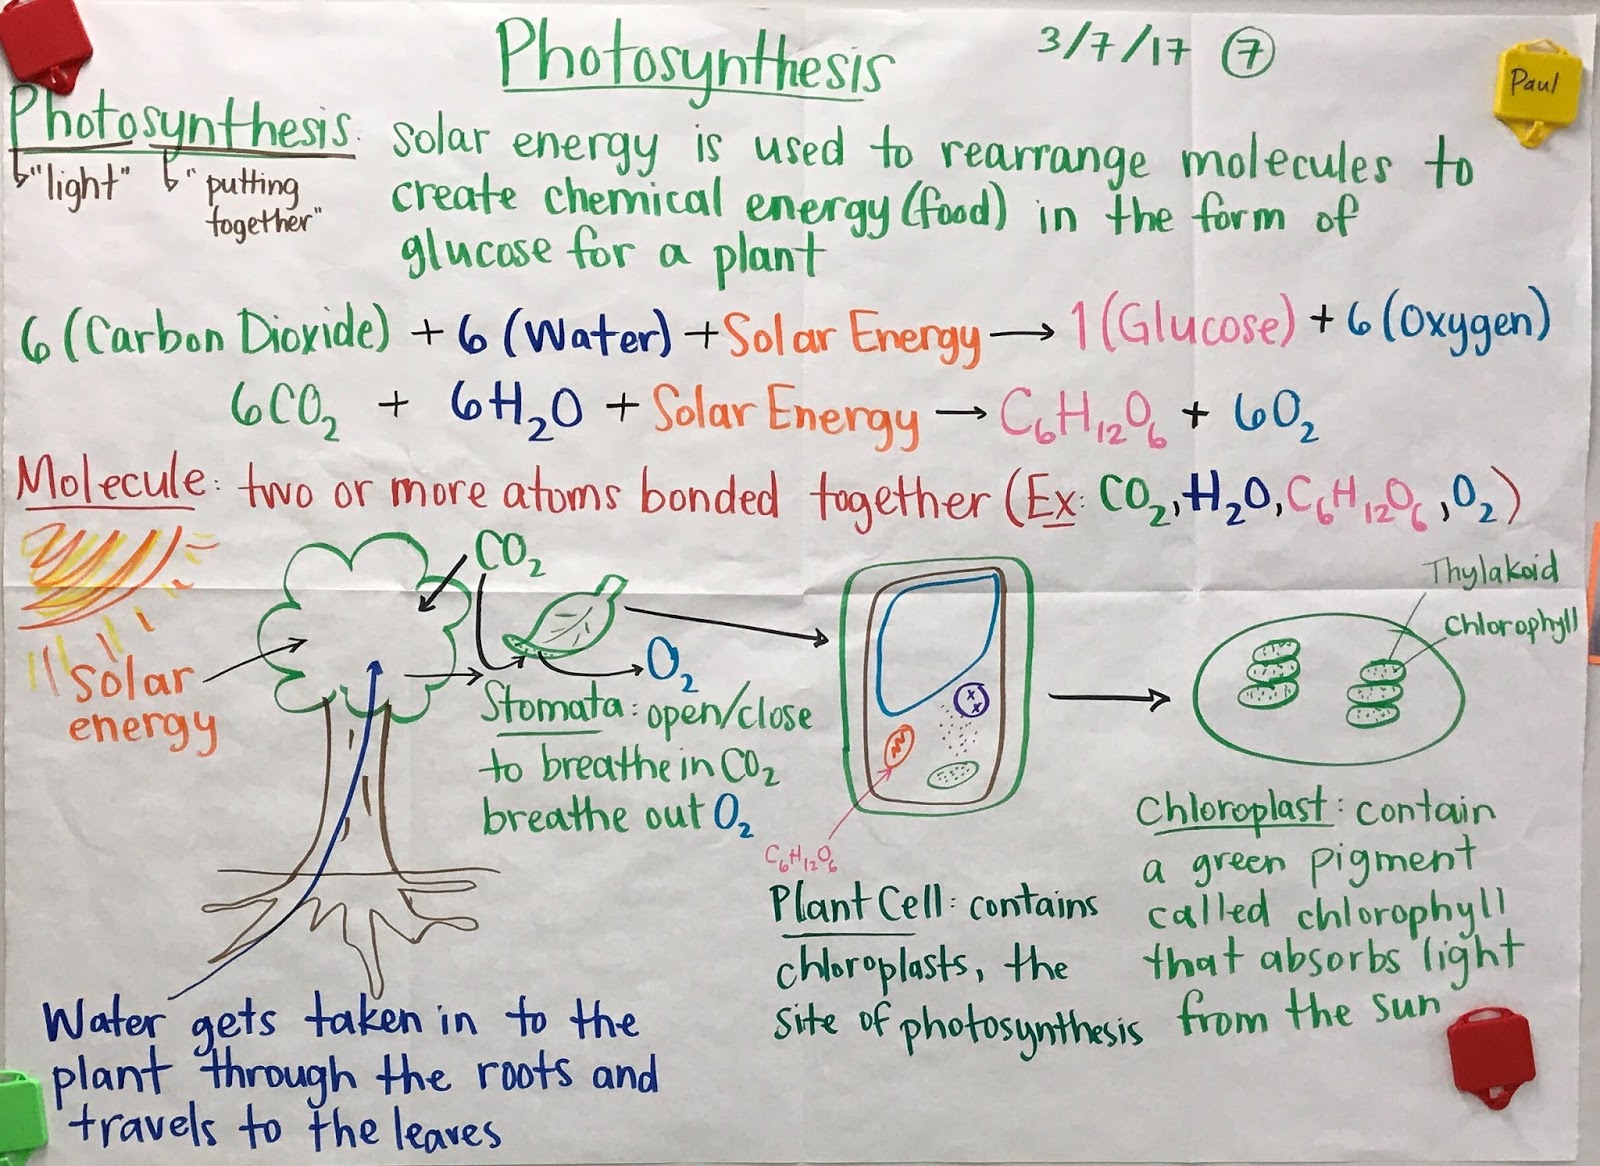 Photosynthesis
3/7/17 7
Paul
Photosynthesis:
"light"
"putting
together"
solar energy is used to rearrange molecules to
create chemical energy (food) in the form of
glucose for a plant
6 (Carbon Dioxide) + 6 (Water) + Solar Energy → 1 (Glucose) + 6 (Oxygen)
6CO₂ + 6H₂O + Solar Energy → C₆H₁₂O₆ + 6O₂
Molecule: two or more atoms bonded together (Ex: CO₂, H₂O, C₆H₁₂O₆, O₂)
CO₂
Solar
energy
O₂
Stomata: open/close
to breathe in CO₂
breathe out O₂
C₆H₁₂O₆
Plant Cell: contains
chloroplasts, the
site of photosynthesis
Thylakoid
Chlorophyll
Chloroplast: contain
a green pigment
called chlorophyll
that absorbs light
from the sun
Water gets taken in to the
plant through the roots and
travels to the leaves